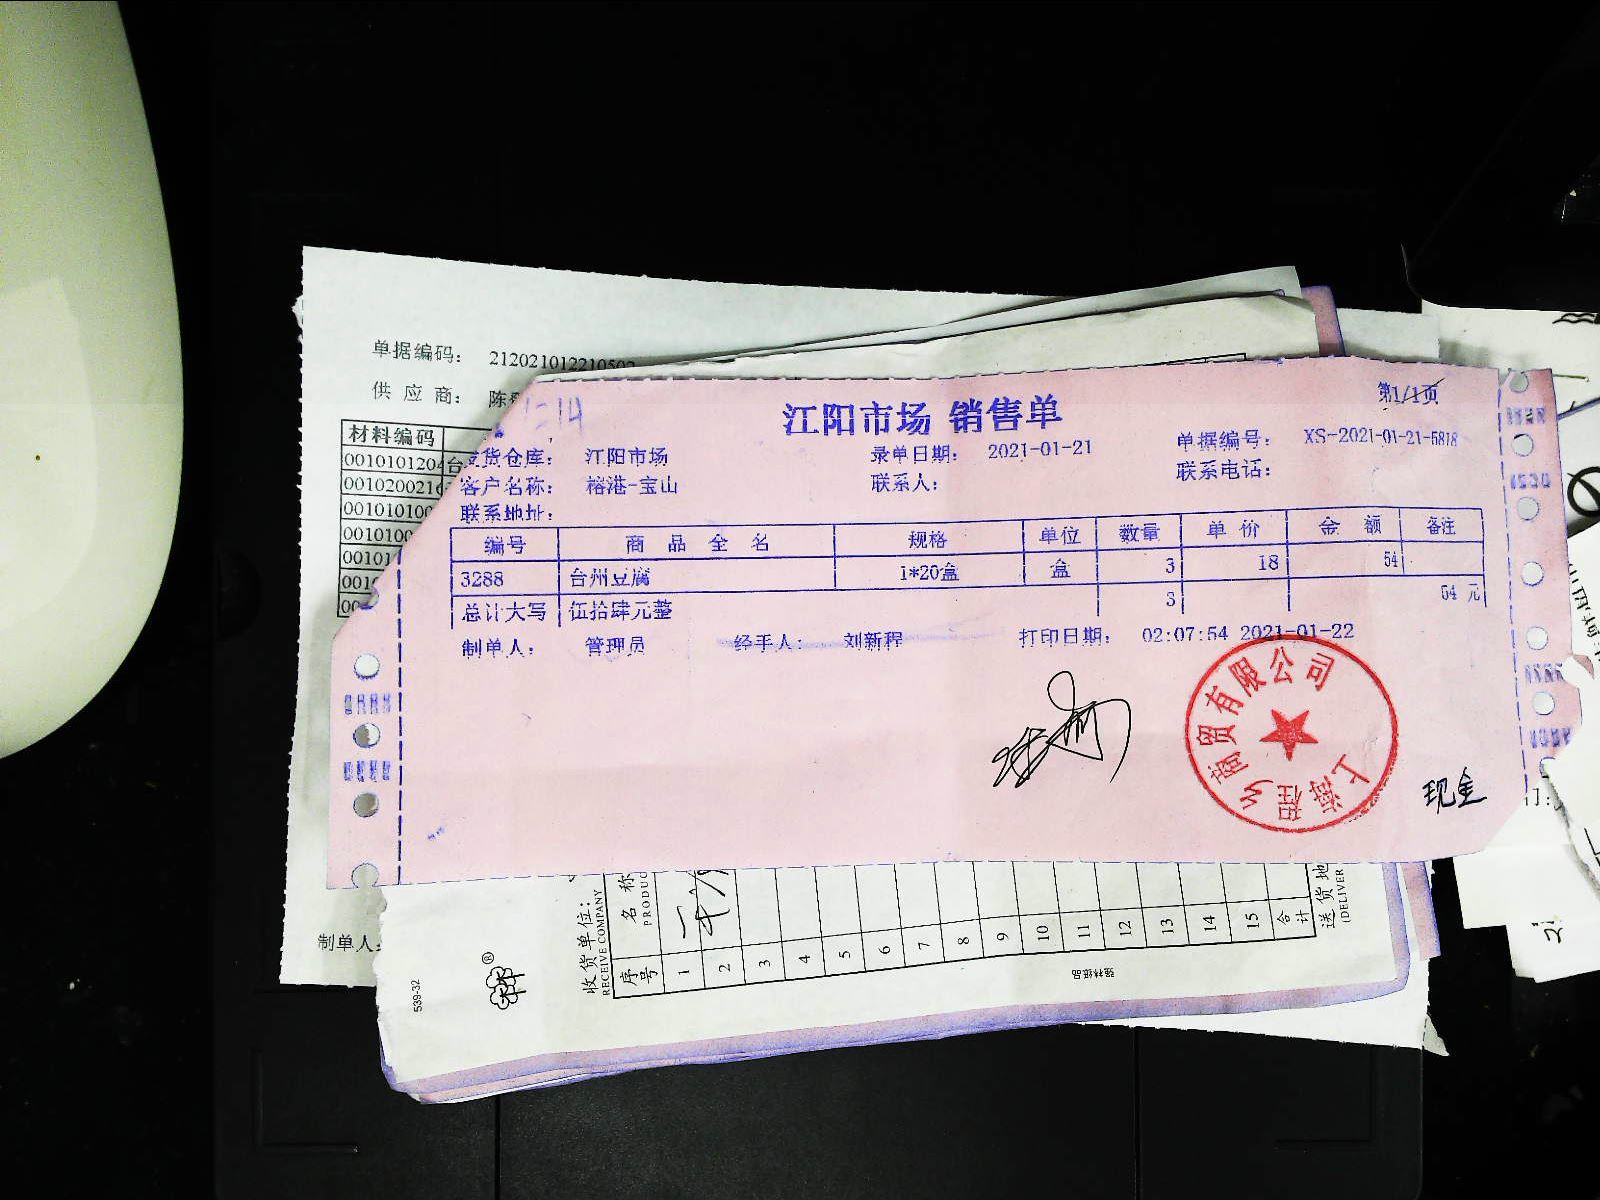 单据编码: 212021012210502
供 应 商: 陈
材料编码
0010101204 台
001020021
001010100
0010100
00101
0010
00
制单人:
江阳市场 销售单
第1/1页
发货仓库: 江阳市场 录单日期: 2021-01-21 单据编号: XS-2021-01-21-5818
客户名称: 榕港-宝山 联系人: 联系电话:
联系地址:
编号 商 品 全 名 规格 单位 数量 单 价 金 额 备注
3288 台州豆腐 1*20盒 盒 3 18 54
总计大写 伍拾肆元整 3 54 元
制单人: 管理员 经手人: 刘新程 打印日期: 02:07:54 2021-01-22
上海程乡商贸有限公司
现金
收货单位:
RECEIVE COMPANY
序号 名 称
PRODUC
1 2 3 4 5 6 7 8 9 10 11 12 13 14 15 合计
送 货 地
(DELIVER
539-32
®
强林纸品